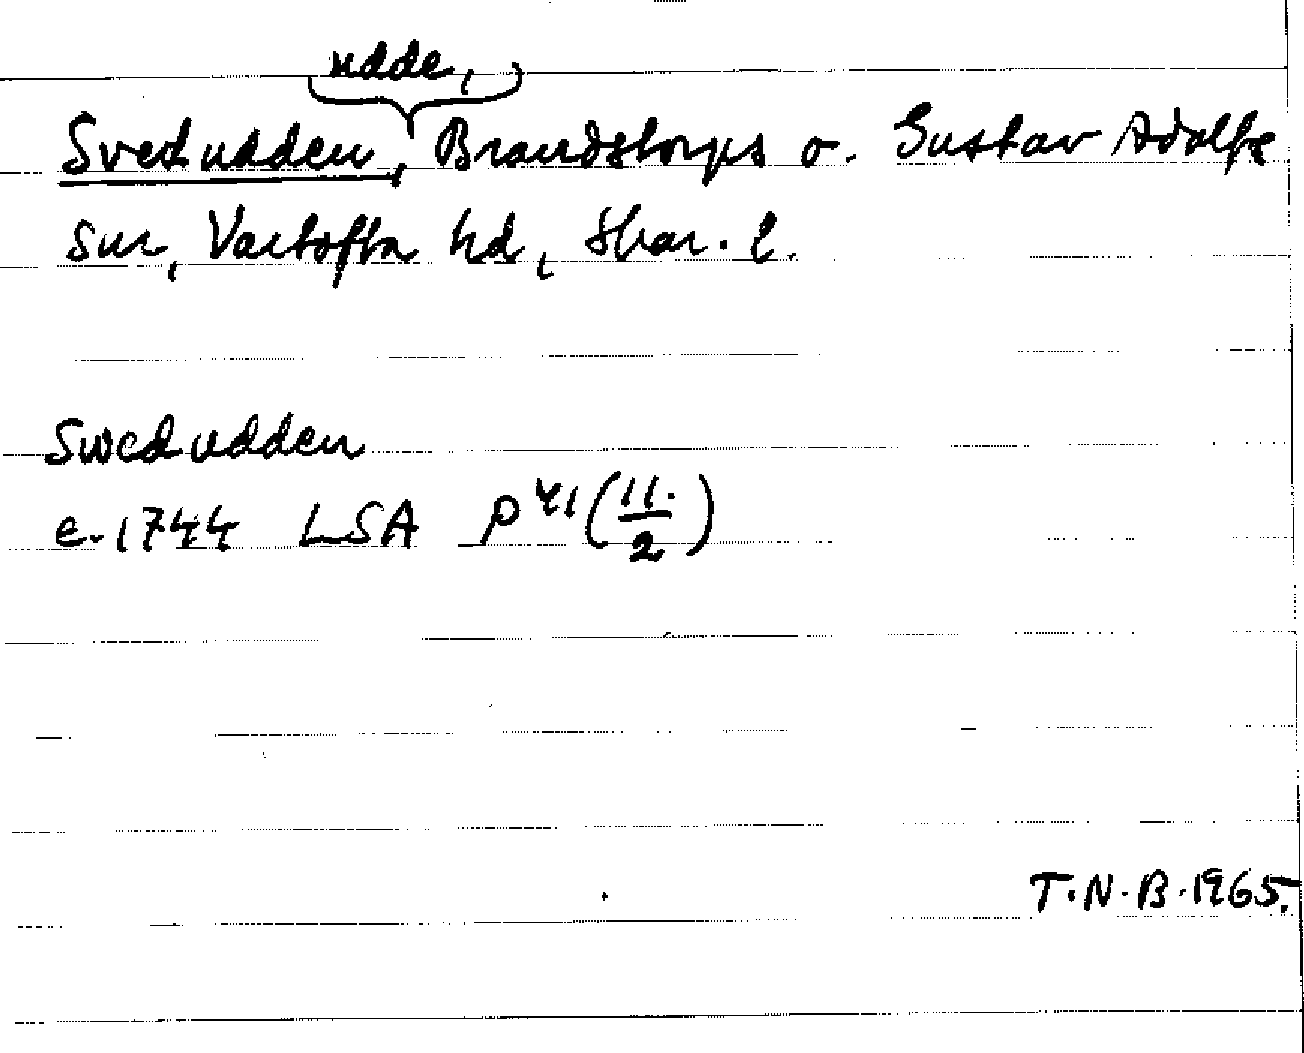 udde,
Svedudden, Brandstorps o. Gustav Adolfs
snr, Vartofta hd, Skar. l.
Swedudden
c. 1744 LSA P 41 (11./2)
T.N.B. 1965.